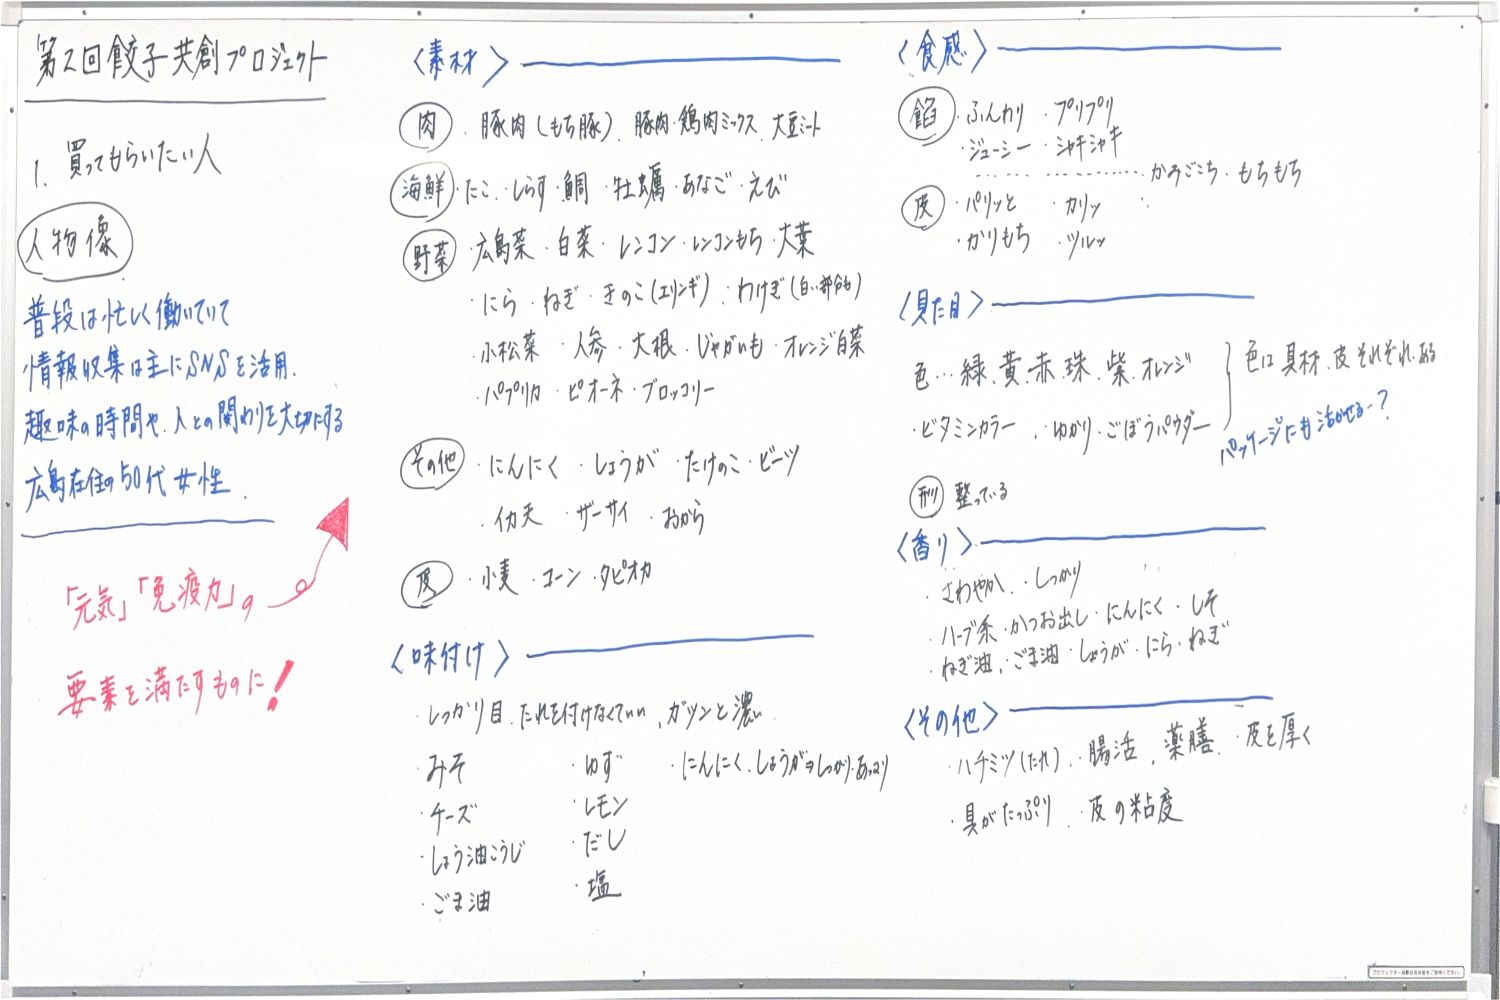 第2回餃子共創プロジェクト
1. 買ってもらいたい人
人物像
普段は忙しく働いていて
情報収集は主にSNSを活用.
趣味の時間や、人との関わりを大切にする
広島在住の50代女性.
「元気」「免疫力」の
要素を満たすものに!
〈素材〉
肉 ・豚肉(もち豚)、豚肉・鶏肉ミックス、大豆ミート
海鮮 ・たこ・しらす・鯛・牡蠣・あなご・えび
野菜 ・広島菜・白菜・レンコン・レンコンもち・大葉
・にら・ねぎ・きのこ(エリンギ)・わけぎ(白い部分も)
・小松菜・人参・大根・じゃがいも・オレンジ白菜
・パプリカ・ピオーネ・ブロッコリー
その他 ・にんにく・しょうが・たけのこ・ビーツ
・イカ天・ザーサイ・おから
皮 ・小麦・コーン・タピオカ
〈味付け〉
・しっかり目、たれを付けなくていい、ガツンと濃い
・みそ ・ゆず ・にんにく、しょうが→しっかり・あっさり
・チーズ ・レモン
・しょう油こうじ ・だし
・ごま油 ・塩
〈食感〉
餡 ・ふんわり ・プリプリ
・ジューシー ・シャキシャキ
かみごこち・もちもち
皮 ・パリッと ・カリッ
・かりもち ・ツルッ
〈見た目〉
色…緑・黄・赤・珠・紫・オレンジ
・ビタミンカラー ・ゆかり・ごぼうパウダー
色は具材、皮それぞれ、ある
パッケージにも活かせる…?
形 整っている
〈香り〉
・さわやか、・しっかり
・ハーブ系・かつお出し・にんにく・しそ
・ねぎ油、・ごま油・しょうが・にら・ねぎ
〈その他〉
・ハチミツ(たれ)、・腸活、・薬膳、・皮を厚く
・具がたっぷり、・皮の粘度